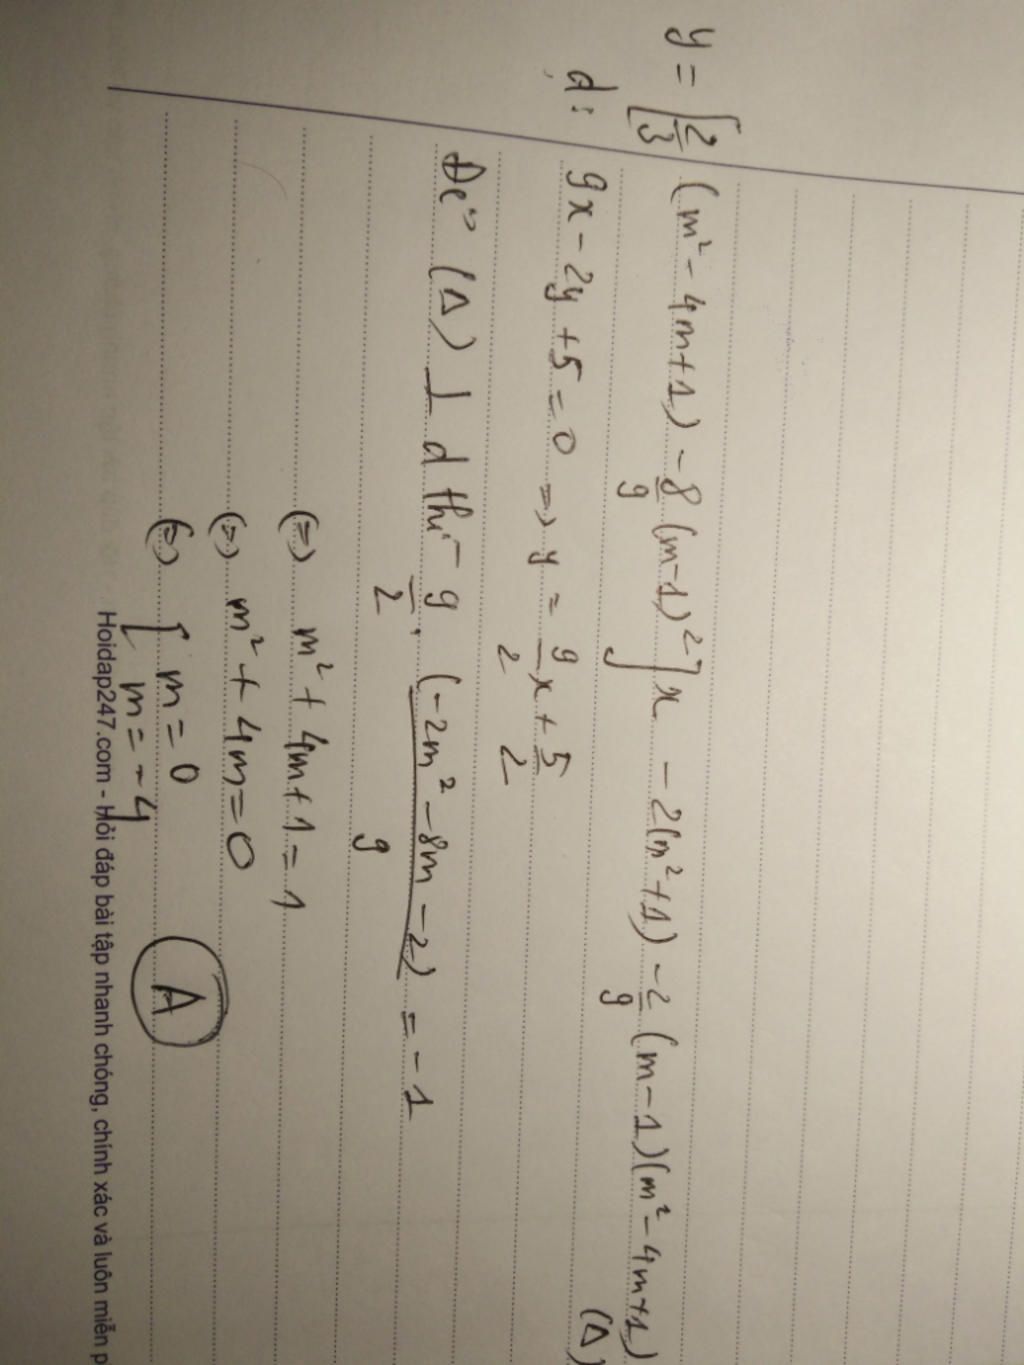 y = [2/3 (m² - 4m + 1) - 8/9 (m-1)²] x - 2(m²+1) - 2/9 (m-1)(m² - 4m + 1) (Δ)
d: 9x - 2y + 5 = 0 => y = 9/2 x + 5/2
Để (Δ) ⊥ d thì 9/2 . (-2m² - 8m - 2)/9 = -1
(=) m² + 4m + 1 = 1
(=) m² + 4m = 0
(=) [ m = 0
m = -4
A
Hoidap247.com - Hỏi đáp bài tập nhanh chóng, chính xác và luôn miễn p